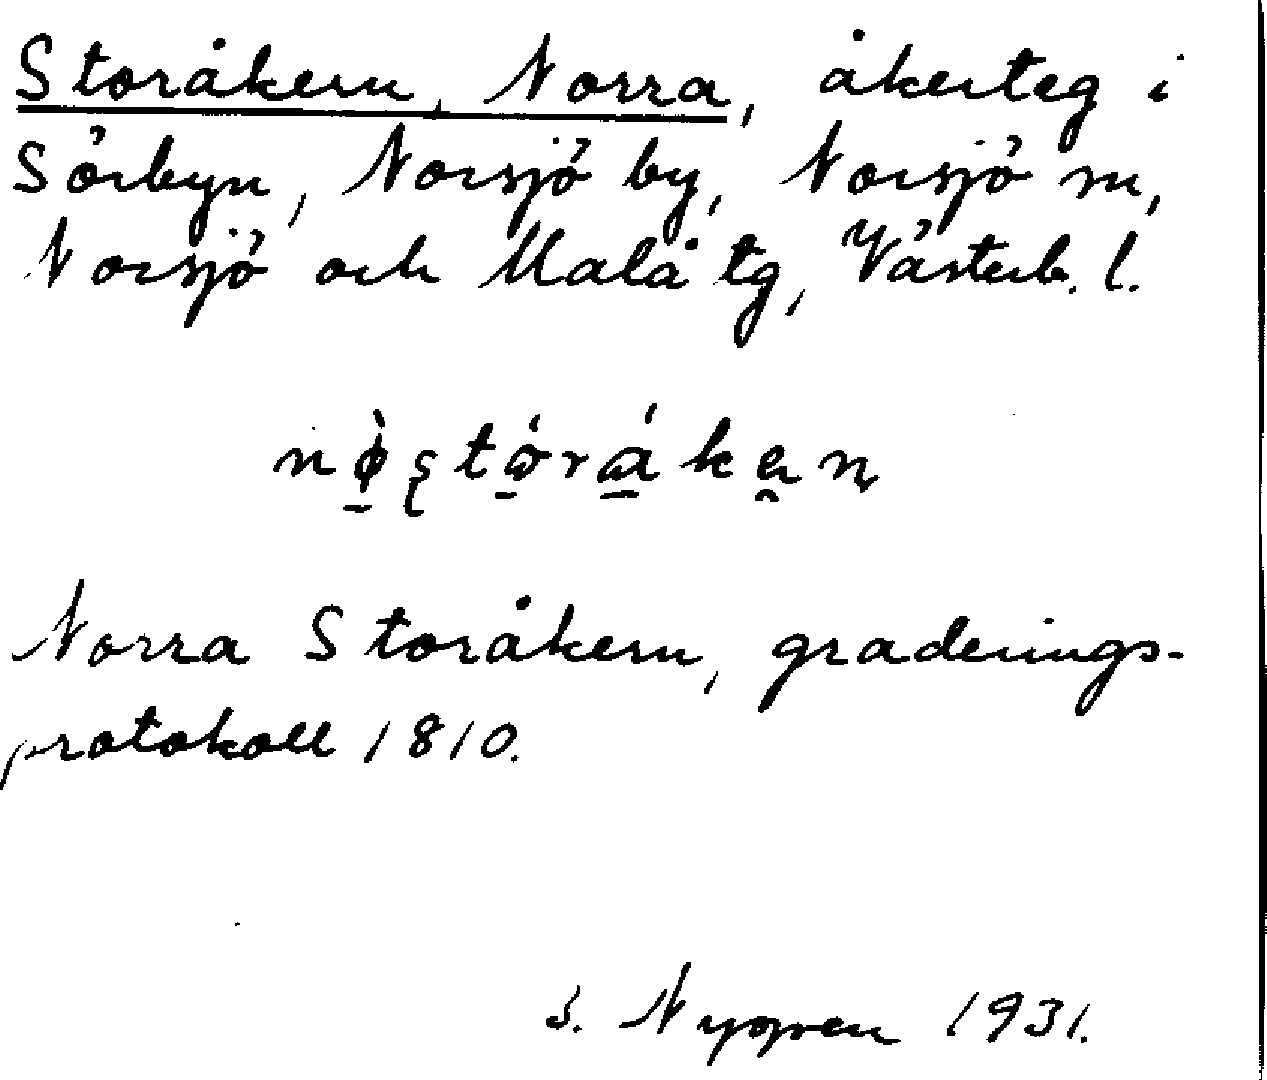 Storåkern, Norra, åkerteg i
Sörbyn, Norsjö by, Norsjö sn,
Norsjö och Malå tg, Västerb. l.
Norra Storåkern, graderings-
protokoll 1810.
S. Nygren 1931.